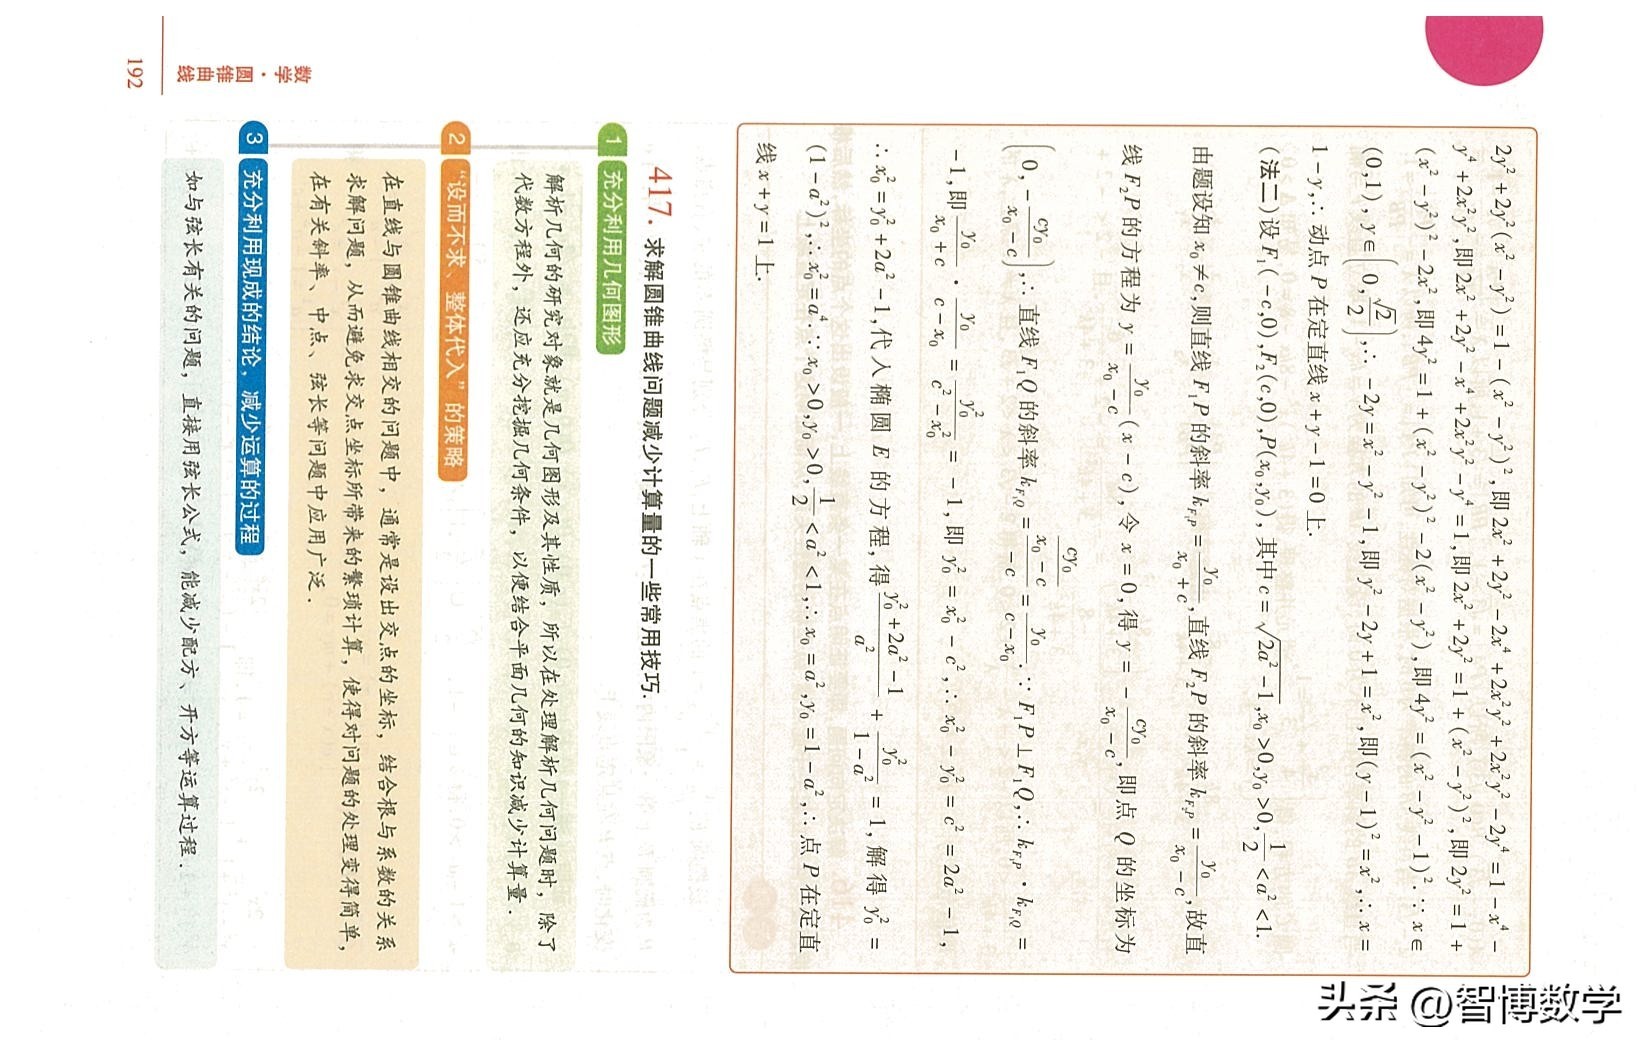 2y²+2y²(x²-y²)=1-(x²-y²)²,即2x²+2y²-2x⁴+2x²y²+2x²y²-2y⁴=1-x⁴-
y⁴+2x²y²,即2x²+2y²-x⁴+2x²y²-y⁴=1,即2x²+2y²=1+(x²-y²)²,即2y²=1+
(x²-y²)²-2x²,即4y²=1+(x²-y²)²-2(x²-y²),即4y²=(x²-y²-1)².∵x∈
(0,1),y∈(0,√2/2),∴-2y=x²-y²-1,即y²-2y+1=x²,即(y-1)²=x²,∴x=
1-y,∴动点P在定直线x+y-1=0上.
(法二)设F₁(-c,0),F₂(c,0),P(x₀,y₀),其中c=√(2a²-1),x₀>0,y₀>0,1/2<a²<1.
由题设知x₀≠c,则直线F₁P的斜率k_{F₁P}=y₀/(x₀+c),直线F₂P的斜率k_{F₂P}=y₀/(x₀-c),故直
线F₂P的方程为y=y₀/(x₀-c)(x-c),令x=0,得y=-cy₀/(x₀-c),即点Q的坐标为
(0,-cy₀/(x₀-c)),∴直线F₁Q的斜率k_{F₁Q}=(cy₀/(x₀-c))/(-c)=y₀/(c-x₀).∵F₁P⊥F₁Q,∴k_{F₁P}·k_{F₁Q}=
-1,即y₀/(x₀+c)·y₀/(c-x₀)=y₀²/(c²-x₀²)=-1,即y₀²=x₀²-c²,∴x₀²-y₀²=c²=2a²-1,
∴x₀²=y₀²+2a²-1,代入椭圆E的方程,得(y₀²+2a²-1)/a²+y₀²/(1-a²)=1,解得y₀²=
(1-a²)²,∴x₀²=a⁴.∵x₀>0,y₀>0,1/2<a²<1,∴x₀=a²,y₀=1-a²,∴点P在定直
线x+y=1上.
417. 求解圆锥曲线问题减少计算量的一些常用技巧.
1 充分利用几何图形
解析几何的研究对象就是几何图形及其性质，所以在处理解析几何问题时，除了
代数方程外，还应充分挖掘几何条件，以便结合平面几何的知识减少计算量.
2 “设而不求、整体代入”的策略
在直线与圆锥曲线相交的问题中，通常是设出交点的坐标，结合根与系数的关系
求解问题，从而避免求交点坐标所带来的繁琐计算，使得对问题的处理变得简单，
在有关斜率、中点、弦长等问题中应用广泛.
3 充分利用现成的结论，减少运算的过程
如与弦长有关的问题，直接用弦长公式，能减少配方、开方等运算过程.
192
数学·圆锥曲线
头条 @智博数学